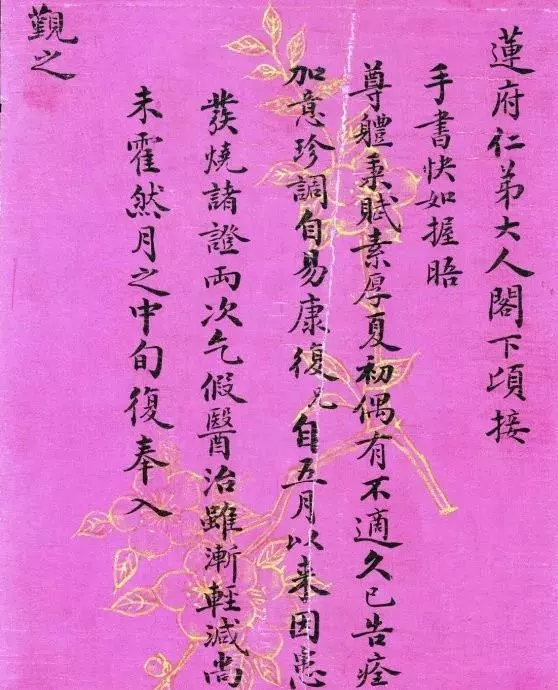 蓮府仁弟大人閣下頃接
手書快如握晤
尊體秉賦素厚夏初偶有不適久已告痊
加意珍調自易康復兄自五月以来因患
發燒諸證兩次乞假醫治雖漸輕減尚
未霍然月之中旬復奉入
觐之